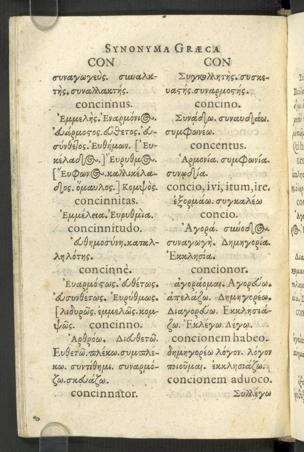 SYNONYMA GRÆCA
CON
συναγωγεύς. συναλακ-
τής. συναλλακτής.
concinnus.
Ἐμμελής. Ἐναρμόνιος.
εὐάρμοστος. εὔθετος. εὐ-
σύνθετος. Εὐθήμων. [Εὐ-
Εὔρυθμος.
[Εὔφωνος.
ὁμαυλος.] Κομψός.
concinnitas.
Ἐμμέλεια. Εὐρυθμία.
concinnitudo.
εὐθημοσύνη. καταλ-
ληλότης.
concinnè.
Ἐναρμόστως. εὐθέτως.
εὐσυνθέτως. Εὐρύθμως.
[λιγυρῶς. ἐμμελῶς. κομ-
ψῶς. concinno.
Ἀρθρόω. Διαθετῶ.
Εὐθετῶ. πλέκω. συμπλέ-
κω. συντίθημι. συναρμό-
ζω. σκευάζω.
concinnator.
CON
συσκε-
υαστής. συναρμοστής.
concino.
Συνάδω. συναυδάω.
συμφωνέω.
concentus.
Ἁρμονία. συμφωνία.
συνῳδία.
concio, ivi, itum, ire.
ἐξορμάω. συγκαλέω
concio.
Ἀγορά. σύνοδος.
συναγωγή. Δημηγορία.
Ἐκκλησία.
concionor.
ἀγοράομαι. Ἀγορεύω.
ἀπελάζω. Δημηγορέω.
Διαγορεύω. Ἐκκλησιά-
ζω. Ἐκλέγω Λέγω.
concionem habeo.
δημηγορέω λόγον. λόγον
ποιοῦμαι. ἐκκλησιάζω.
concionem advoco.
Συλλέγω